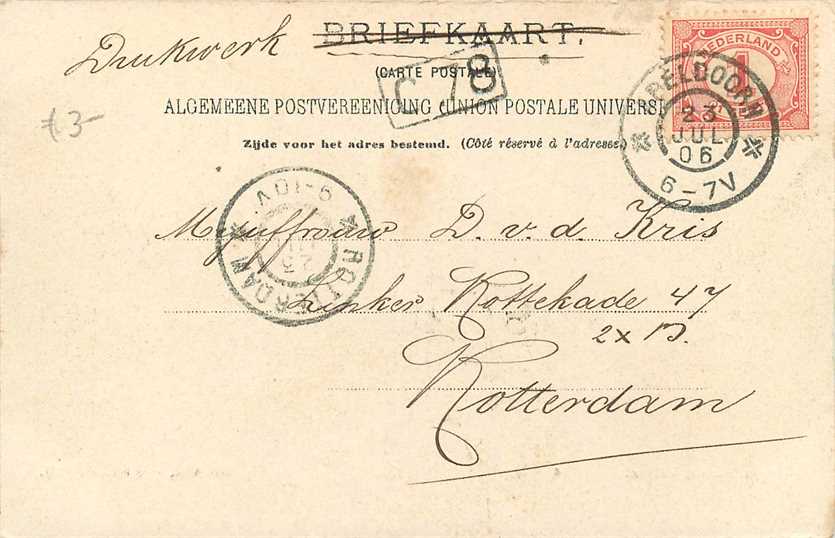 Drukwerk
BRIEFKAART.
(CARTE POSTALE)
C 78
ALGEMEENE POSTVEREENIGING (UNION POSTALE UNIVERS
Zijde voor het adres bestemd. (Côté réservé à l'adresse.)
NEDERLAND
1
APELDOORN
23
JUL
06
6-7V
ROTTERDAM
9-10V
23
Mejuffrouw D. v. d. Kris
Linker Rottekade 47
2 x B.
Rotterdam